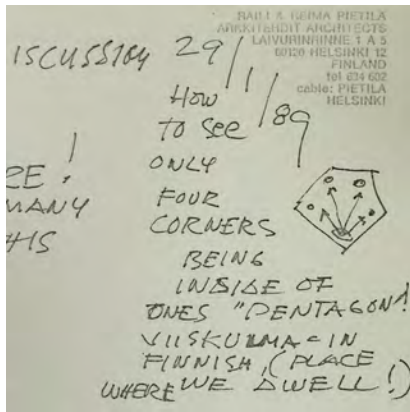 RAILI & REIMA PIETILÄ
ARKKITEHDIT ARCHITECTS
LAIVURINRINNE 1 A 5
00120 HELSINKI 12
FINLAND
tel 634 602
cable: PIETILA
HELSINKI
ISCUSSION 29/1/89
HOW
TO SEE
ONLY
FOUR
CORNERS
BEING
INSIDE OF
ONES "PENTAGON"!
VIISKULMA = IN
FINNISH, (PLACE
WHERE WE DWELL!)
RE!
MANY
HS